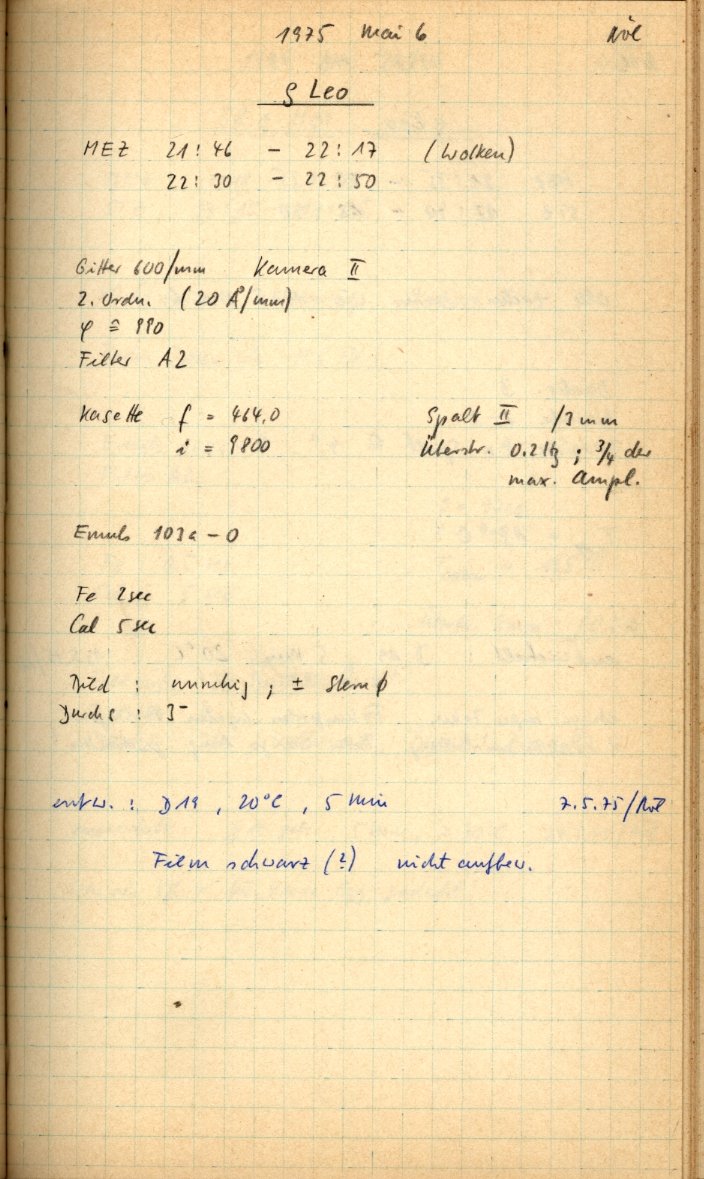 1975 Mai 6 Nöl
ρ Leo
MEZ 21:46 – 22:17 (Wolken)
22:30 – 22:50
Gitter 600/mm Kamera II
2. Ordn. (20 Å/mm)
φ ≙ 990
Filter A2
Kasette f = 464,0 Spalt II /3 mm
i = 9800 Überstr. 0.2 Hz ; 3/4 der
max. Ampl.
Emuls 103a – O
Fe 2 sec
Cal 5 sec
Bild : unruhig ; ± Stern
Durchs : 3⁻
entw. : D19 , 20°C , 5 Min 7.5.75/Nöl
Film schwarz (?) nicht aufbew.